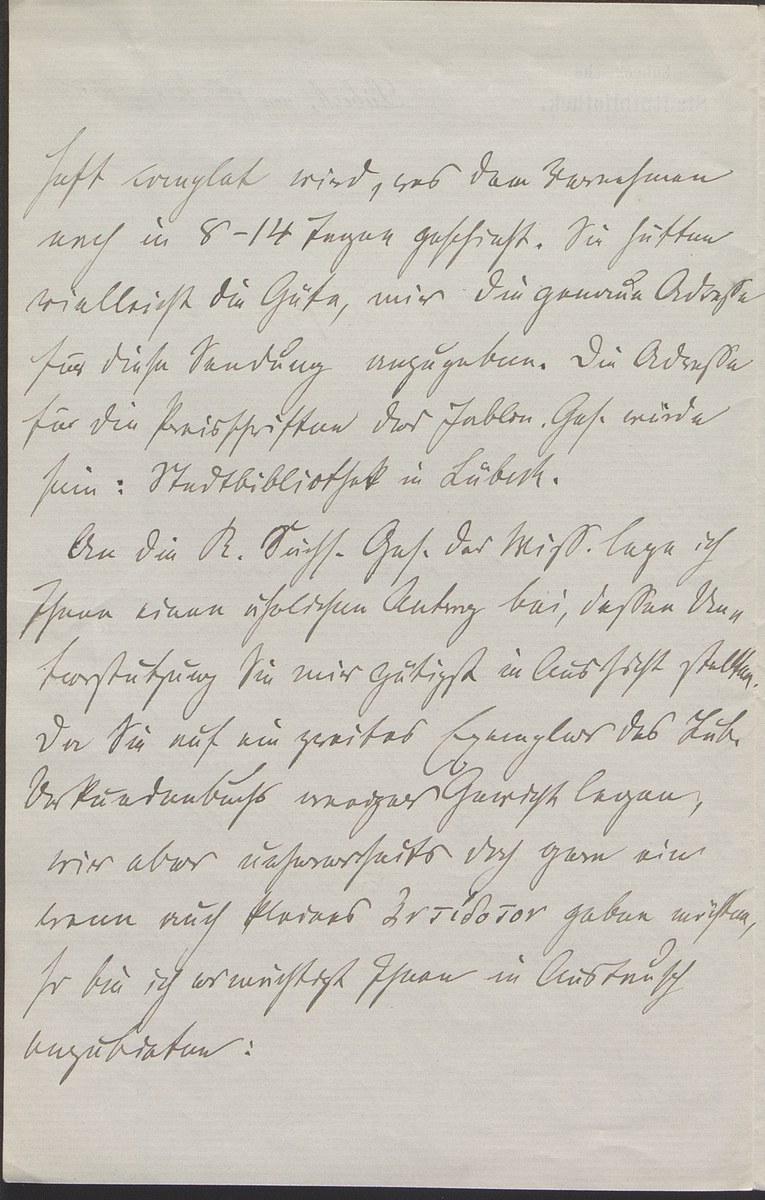 heft complet wird, was dem Vernehmen
nach in 8-14 Tagen geschieht. Sie hätten
vielleicht die Güte, mir die genaue Adresse
für diese Sendung anzugeben. Die Adresse
für die Preisschriften der Jablon. Ges. würde
sein: Stadtbibliothek in Lübeck.
An die K. Sächs. Ges. der Wiss. lege ich
Ihnen einen ähnlichen Antrag bei, dessen Un-
terstützung Sie mir gütigst in Aussicht stellten.
Da Sie auf ein zweites Exemplar des Lüb.
Urkundenbuchs weniger Gewicht legen,
wir aber unsererseits doch gern ein
wenn auch kleines ἀντίδοτον geben möchten,
so bin ich ermächtigt Ihnen in Austausch
anzubieten: